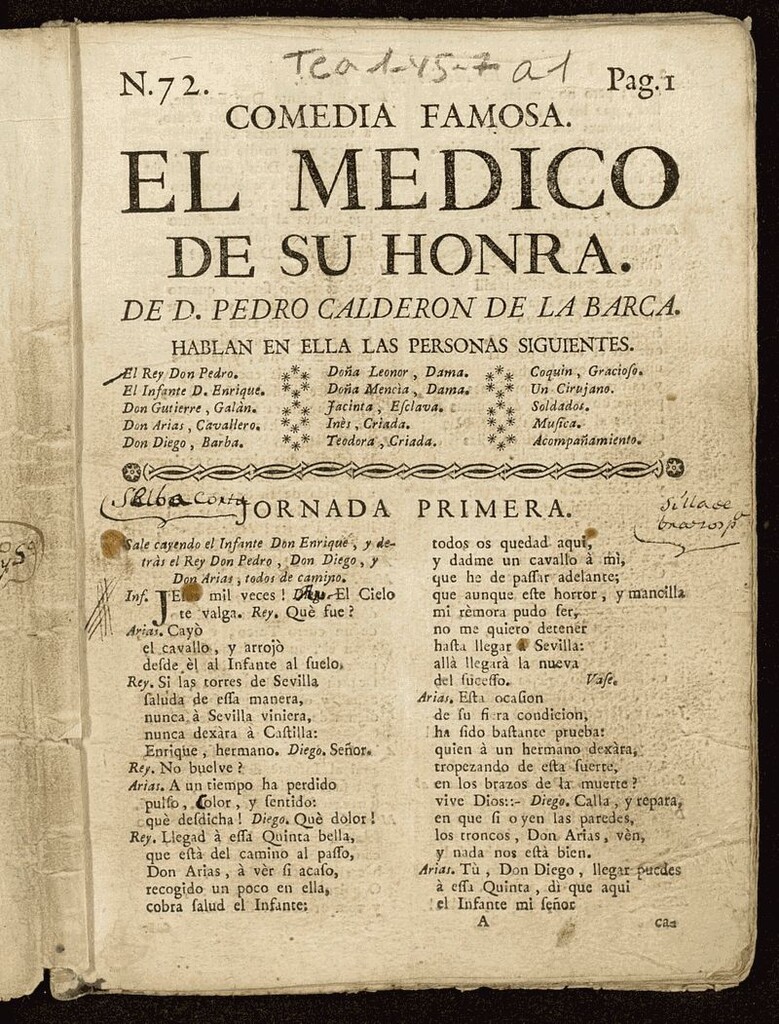 Tea 1-45-7 a1
N.72. Pag.1
COMEDIA FAMOSA.
EL MEDICO
DE SU HONRA.
DE D. PEDRO CALDERON DE LA BARCA.
HABLAN EN ELLA LAS PERSONAS SIGUIENTES.
El Rey Don Pedro.
El Infante D. Enrique.
Don Gutierre, Galàn.
Don Arias, Cavallero.
Don Diego, Barba.
Doña Leonor, Dama.
Doña Mencia, Dama.
Jacinta, Eſclava.
Inès, Criada.
Teodora, Criada.
Coquin, Gracioſo.
Un Cirujano.
Soldados.
Muſica.
Acompañamiento.
Selba corta
JORNADA PRIMERA.
Silla de
brazos pª
Sale cayendo el Infante Don Enrique, y de-
tràs el Rey Don Pedro, Don Diego, y
Don Arias, todos de camino.
Inf. JEſus mil veces! El Cielo
te valga. Rey. Què fue?
Arias. Cayò
el cavallo, y arrojò
deſde èl al Infante al ſuelo.
Rey. Si las torres de Sevilla
ſaluda de eſſa manera,
nunca à Sevilla viniera,
nunca dexàra à Caſtilla:
Enrique, hermano. Diego. Señor.
Rey. No buelve?
Arias. A un tiempo ha perdido
pulſo, color, y ſentido:
què deſdicha! Diego. Què dolor!
Rey. Llegad à eſſa Quinta bella,
que eſtà del camino al paſſo,
Don Arias, à vèr ſi acaſo,
recogido un poco en ella,
cobra ſalud el Infante:
todos os quedad aqui,
y dadme un cavallo à mì,
que he de paſſar adelante;
que aunque eſte horror, y mancilla
mi rèmora pudo ſer,
no me quiero detener
haſta llegar à Sevilla:
allà llegarà la nueva
del ſuceſſo. Vaſe.
Arias. Eſta ocaſion
de ſu fiera condicion,
ha ſido baſtante prueba:
quien à un hermano dexàra,
tropezando de eſta ſuerte,
en los brazos de la muerte?
vive Dios::- Diego. Calla, y repara,
en que ſi oyen las paredes,
los troncos, Don Arias, vèn,
y nada nos eſtà bien.
Arias. Tù, Don Diego, llegar puedes
à eſſa Quinta, dì que aqui
el Infante mi ſeñor
A ca-